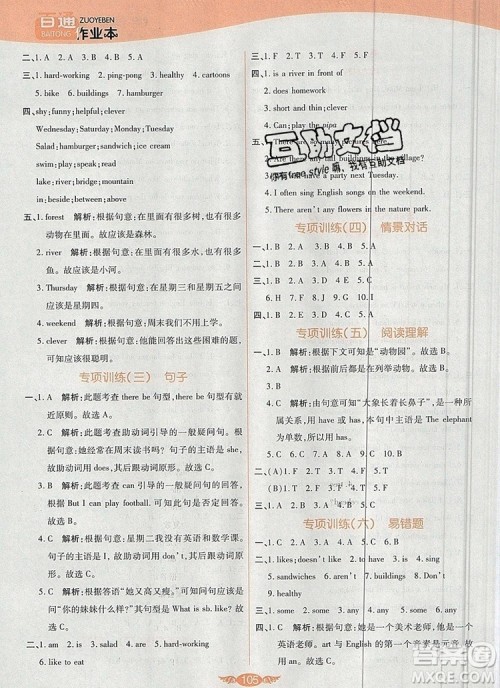 百通
BAITONG
ZUOYEBEN
作业本
二、1. A 2. A 3. C 4. B 5. A
三、1. hard-working 2. ping-pong 3. healthy 4. cartoons
5. bike 6. buildings 7. hamburger
四、shy; funny; helpful; clever
Wednesday; Saturday; Monday; Tuesday
Salad; hamburger; sandwich; bread
swim; play; speak; read
五、1. forest 解析:根据句意:在里面有很多树,也有很多
动物在里面。故应该是森林。
2. river 解析:根据句意:在里面有很多水,也有很多
鱼。故应该是小河。
3. Thursday 解析:根据句意:在星期三和星期五之间
应该是星期四。
4. weekend 解析:根据句意:周末我们不工作。
5. clever 解析:根据句意:他能回答很多困难的问题,
可知应该很聪明。
专项训练(三) 句子
一、1. A 解析:此题考查 there be 句型,there be 句型有就
近原则。故选 A。
2. C 解析:此题考查助动词引导的一般疑问句。句意:
你经常在周末读书吗?故选 C。
3. C 解析:根据句意:她经常在周末画画。句型主语是
she,故用动词第三人称单数形式。故选 C。
4. A 解析:此题考查情态动词引导的一般疑问句。根据
But I can play football. 可知是否定回答。故选 A。
5. C 解析:根据句意:星期二我没有英语和数学课。
句子主语为 I,故助动词应用 don't,表并列否定用 or。
故选 C。
6. C 解析:根据答语“她又高又瘦。”可知问句句意是
“你的妹妹什么样?”故应该是 What is sb. like? 故
选 C。
二、1. am 2. is 3. salad 4. are 5. hard-working
6. like to eat
三、1. G 2. D 3. A 4. F 5. C 6. B 7. E
四、1. is a river in front of
2. does homework
3. short and thin; clever
4. Can; play the
5. like
2. Are there any tall buildings in the village?
have a party next Tuesday.
4. I often sing English songs on the weekend.
5. There aren't any flowers in the nature park.
互助文档
你有free style 嘛,我有互助文档
专项训练(四) 情景对话
一、1. B 2. A 3. B 4. B 5. A
二、1. D 2. C 3. E 4. B 5. A
三、1. D 2. C 3. B 4. A 5. E
四、(一)1. F 2. T 3. F 4. T 5. F
(二)1. A 2. B 3. A 4. B 5. C
专项训练(五) 阅读理解
一、1. B 解析:根据下文可知是“动物园”。故选 B。
2. A 解析:根据前后都是在列举动物。故选 B。
3. C
4. B 解析:由句意可知“大象长着长鼻子”,表示某物的
所属关系,应用 has,本句中主语 The elephant
为单数,故选 B。
5. C 6. A 7. B 8. C 9. A 10. C
二、(一)1. F 2. F 3. T 4. T 5. F
(二)1. C 2. A 3. A 4. B 5. C
三、(一)1. A 2. A 3. A 4. B 5. C
(二)1. F 2. T 3. F 4. F 5. F
专项训练(六) 易错题
一、1. likes; doesn't like 2. doing 3. aren't 4. is
5. sandwiches 6. are 7. reading 8. buildings
9. like
三、1. some 2. any 3. some 4. any
四、1. an 解析:根据句意:她是一个美术老师,他是一个
英语老师。art 与 English 的第一个音素是元音音素,
故用 an。
105
答案圈